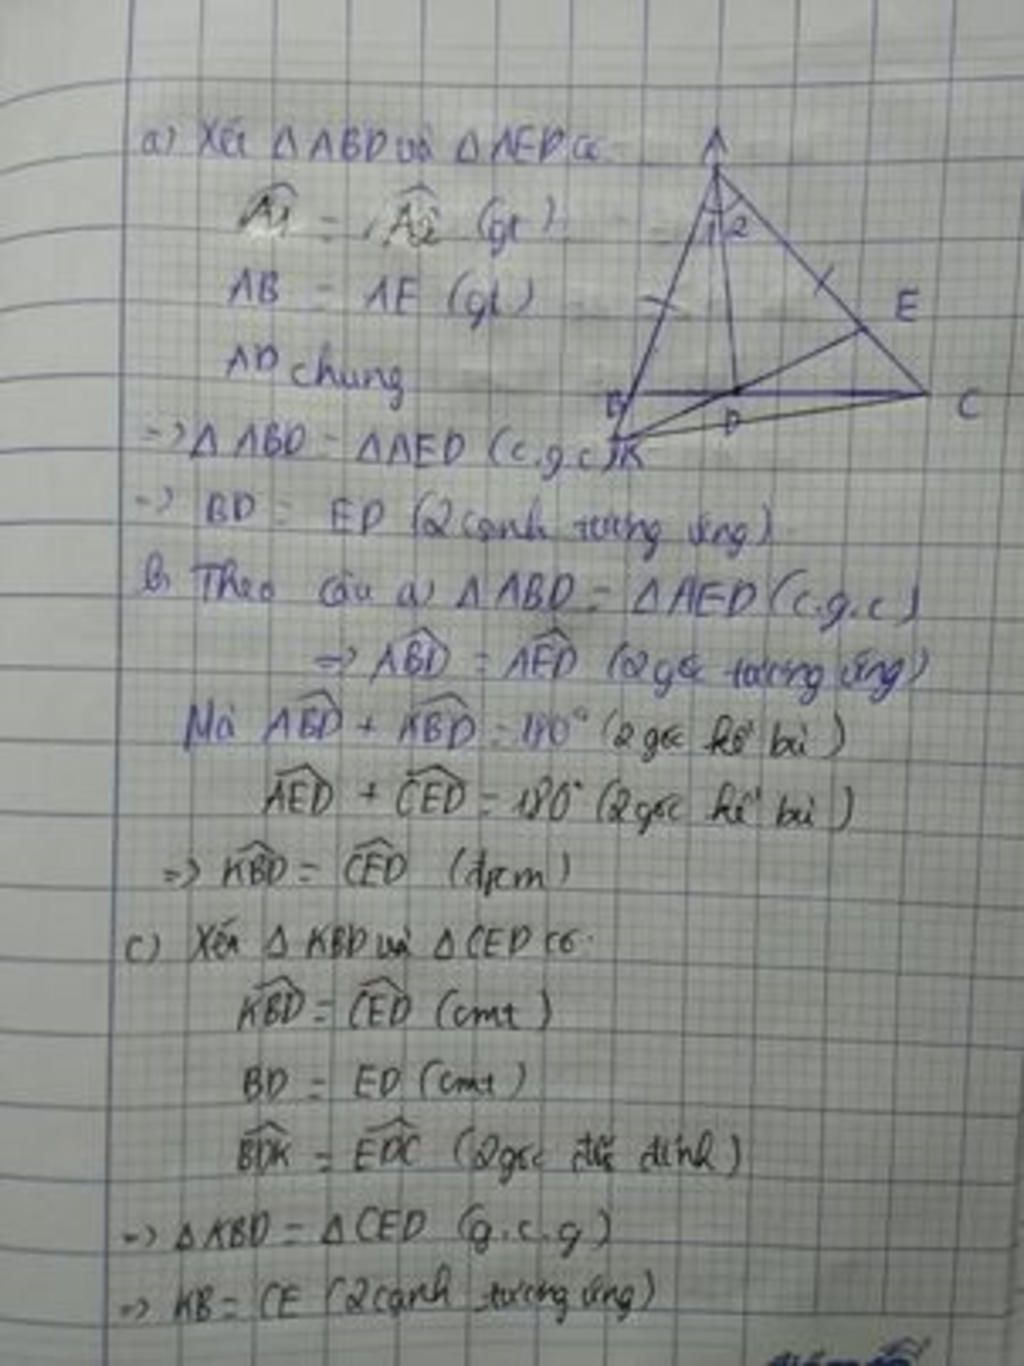 a) Xét Δ ABD và Δ AED có
A
Â1 = Â2 (gt)
1 2
AB = AE (gt)
E
AD chung
B
D
C
K
=> Δ ABD = Δ AED (c.g.c)
=> BD = ED (2 cạnh tương ứng)
b, Theo câu a) Δ ABD = Δ AED (c.g.c)
=> ABD̂ = AED̂ (2 góc tương ứng)
Mà ABD̂ + KBD̂ = 180° (2 góc kề bù)
AED̂ + CED̂ = 180° (2 góc kề bù)
=> KBD̂ = CED̂ (đpcm)
c) Xét Δ KBD và Δ CED có
KBD̂ = CED̂ (cmt)
BD = ED (cmt)
BDK̂ = EDĈ (2 góc đối đỉnh)
=> Δ KBD = Δ CED (g.c.g)
=> KB = CE (2 cạnh tương ứng)